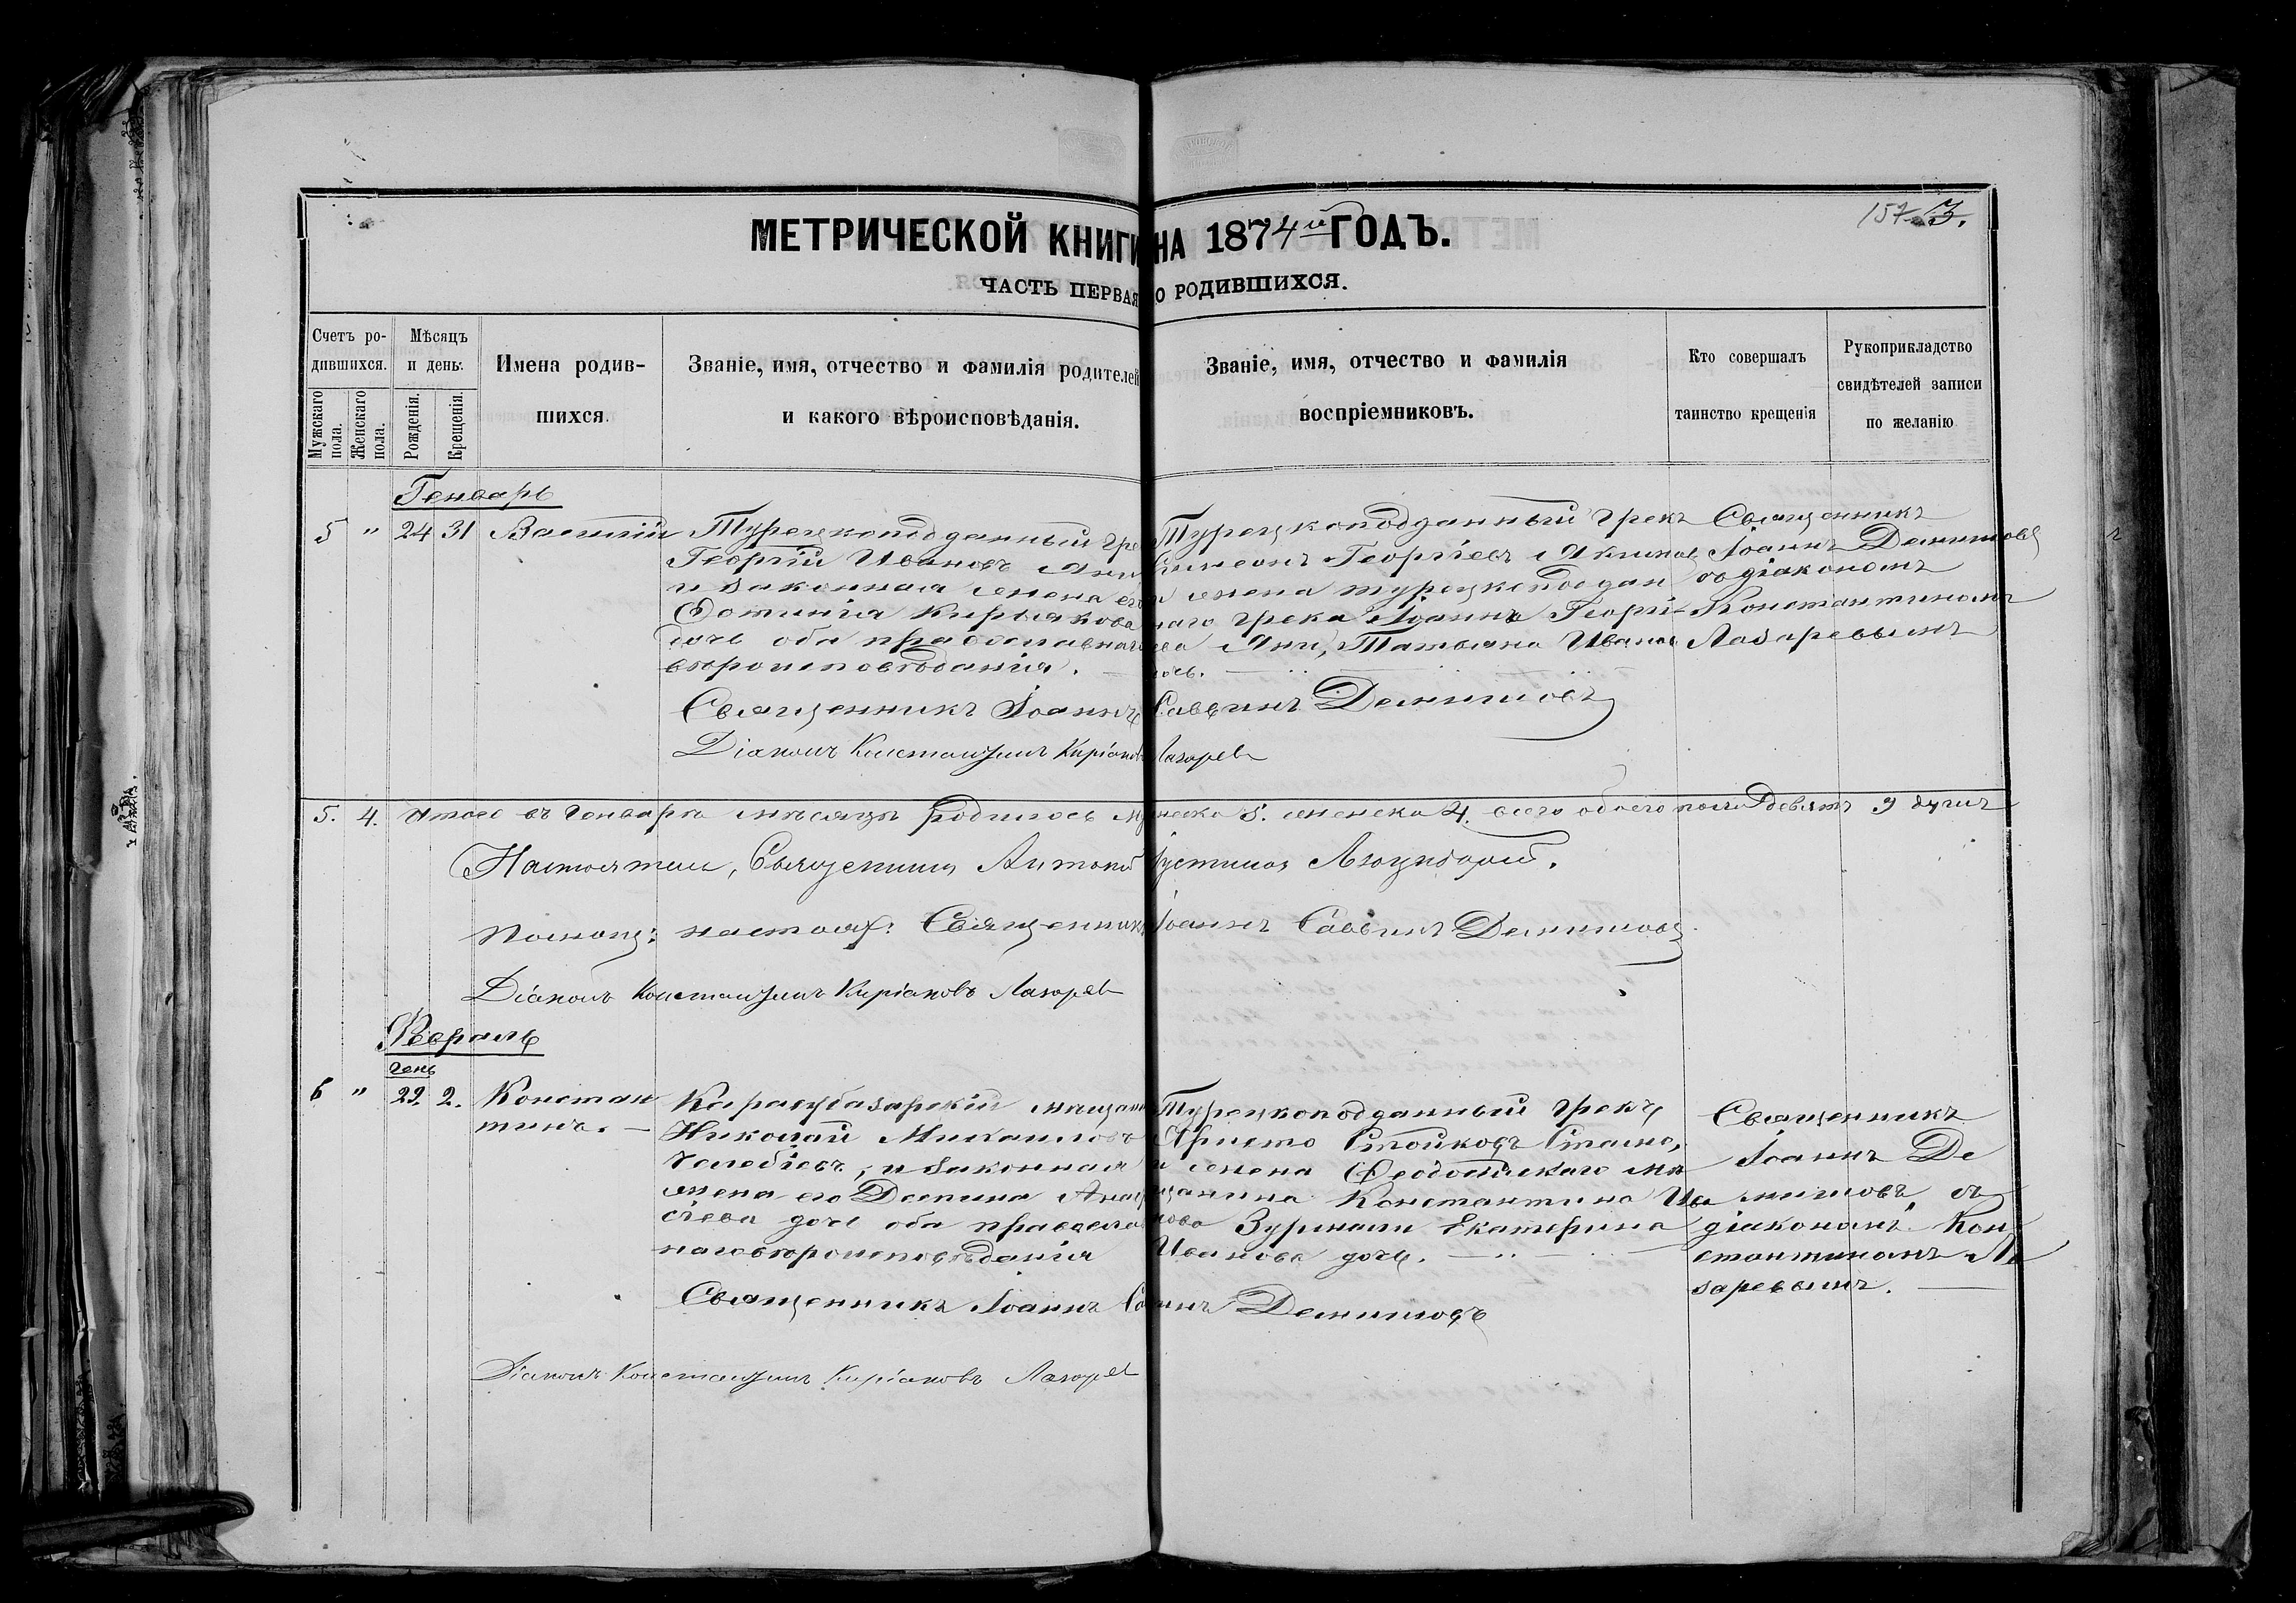 157 3.
МЕТРИЧЕСКОЙ КНИГИ НА 1874й ГОДЪ.
ЧАСТЬ ПЕРВАЯ О РОДИВШИХСЯ.
Счетъ ро-
дившихся.
Мужскаго пола.
Женскаго пола.
Мѣсяцъ
и день.
Рожденія.
Крещенія.
Имена родив-
шихся.
Званіе, имя, отчество и фамилія родителей
и какого вѣроисповѣданія.
Званіе, имя, отчество и фамилія
воспріемниковъ.
Кто совершалъ
таинство крещенія
Рукоприкладство
свидѣтелей записи
по желанію
Генварь
5 " 24 31 Василій
Турецкоподданный гре
Георгій Ивановъ
и законная жена его
Фотинія Кирьякова
дочь оба православнаго
вѣроисповѣданія.
Турецкоподданный грекъ
Симеонъ Георгіевъ
и жена турецкоподдан
наго грека Іоанна Георгі-
ева Яни, Татьяна Иванова
дочь.
Священникъ
Іоаннъ Демишовъ
съ діакономъ
Константиномъ
Лазаревымъ
Священникъ Іоаннъ Саввинъ Демишовъ
Діаконъ Константинъ Киріаковъ Лазарев
5. 4. Итого въ Генварѣ мѣсяцѣ родилось мужеска 5. женска 4. всего обоего пола девять 9 душъ
Настоятель, Священникъ
Помощ: настоят: Священникъ Іоаннъ Саввинъ Демишовъ
Діаконъ Константинъ Киріаковъ Лазарев
Февраль
Генв
6 " 29. 2. Констан
тинъ.
Карасубазарскій мѣщани
Николай Михаиловъ
Челебіевъ, и законная
жена его Деспина Анас
сіева дочь оба православ
наго вѣроисповѣданія
Турецкоподданный грекъ
Христо Стойковъ
и жена Феодосійскаго мѣ
щанина Константина Ива
нова Екатерина
Иванова дочь.
Священникъ
Іоаннъ Де
мишовъ, съ
діакономъ Кон
стантиномъ Ла
заревымъ.
Священникъ Іоаннъ Саввинъ Демишовъ
Діаконъ Константинъ Киріаковъ Лазарев